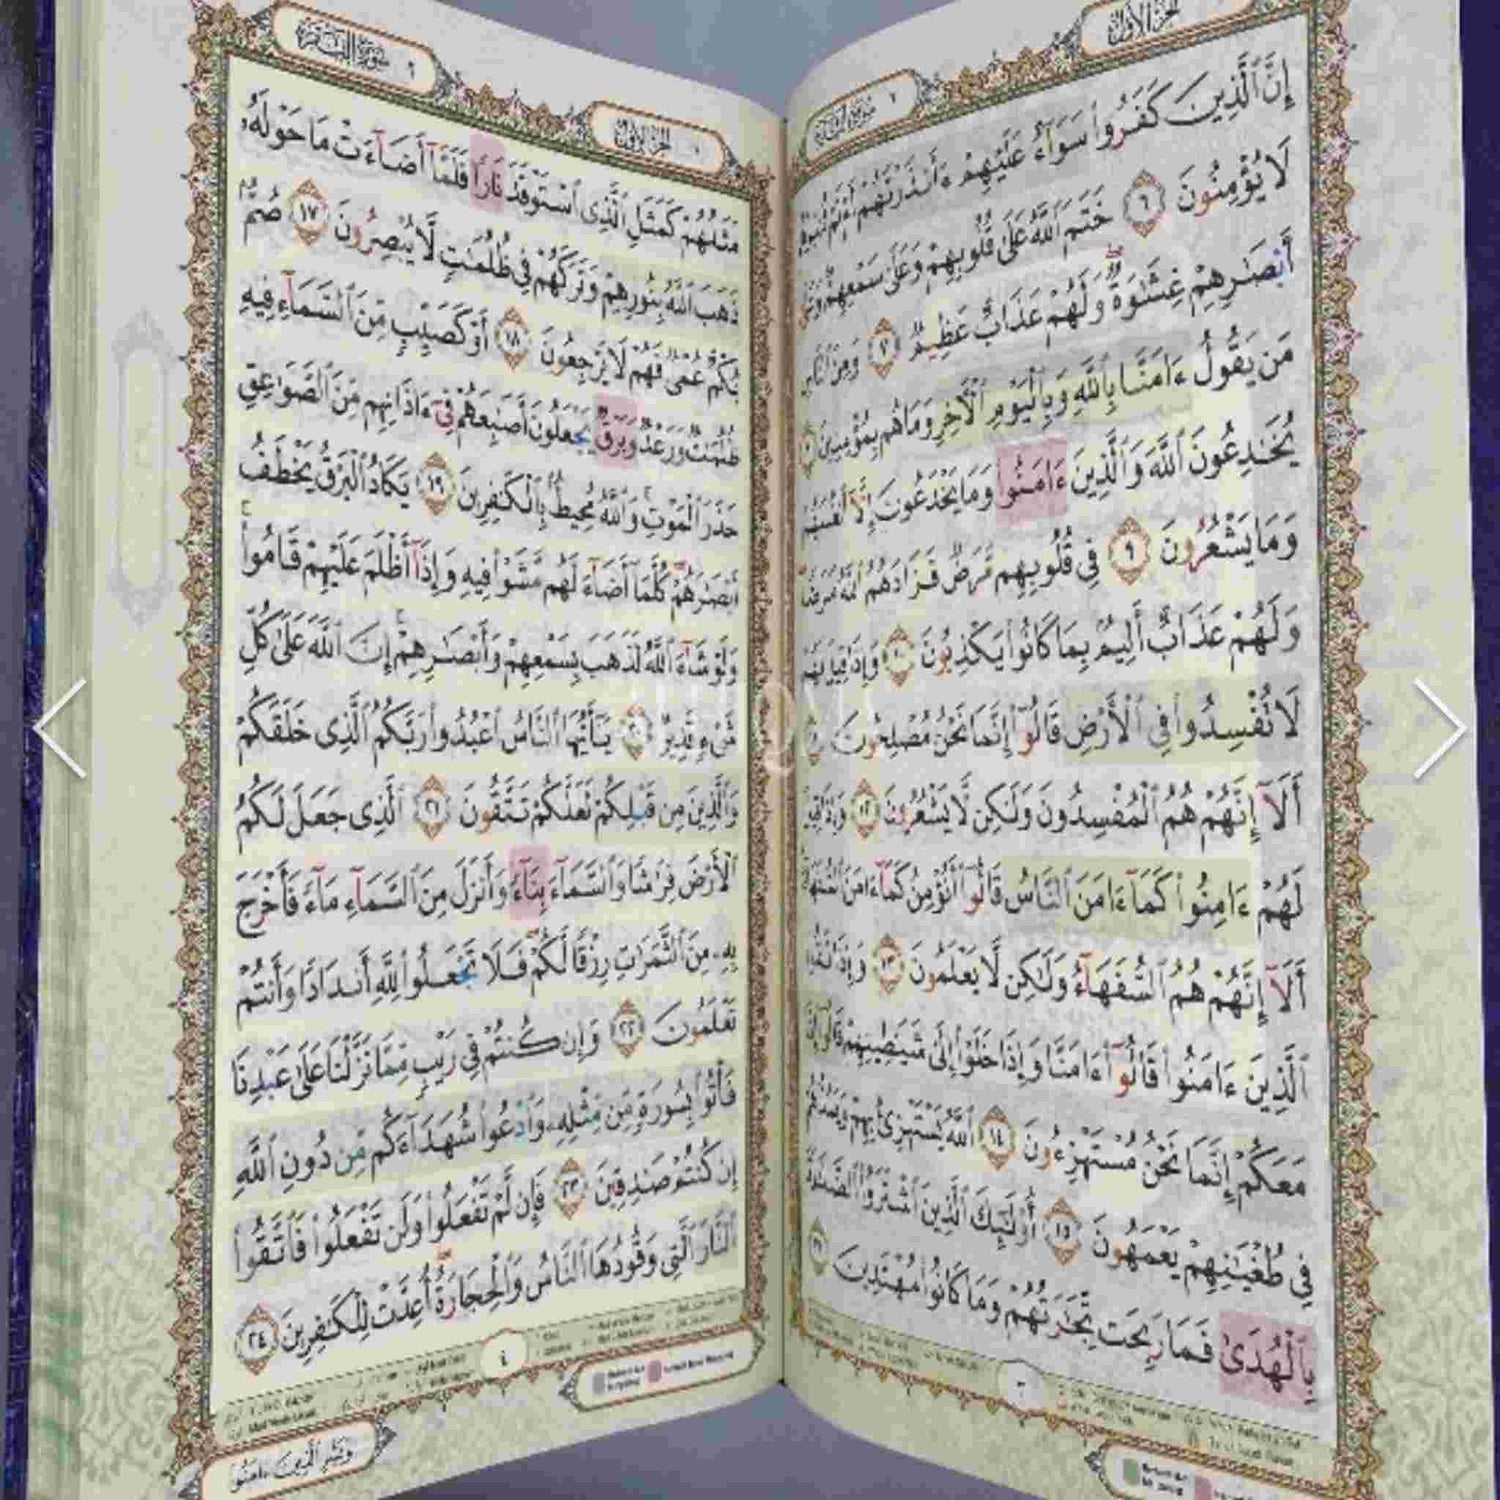 الجزء الأول
سورة البقرة ٢
إِنَّ ٱلَّذِينَ كَفَرُوا۟ سَوَآءٌ عَلَيْهِمْ ءَأَنذَرْتَهُمْ أَمْ لَمْ تُنذِرْهُمْ
لَا يُؤْمِنُونَ ٦ خَتَمَ ٱللَّهُ عَلَىٰ قُلُوبِهِمْ وَعَلَىٰ سَمْعِهِمْ وَعَلَىٰٓ
أَبْصَـٰرِهِمْ غِشَـٰوَةٌ وَلَهُمْ عَذَابٌ عَظِيمٌ ٧ وَمِنَ ٱلنَّاسِ
مَن يَقُولُ ءَامَنَّا بِٱللَّهِ وَبِٱلْيَوْمِ ٱلْـَٔاخِرِ وَمَا هُم بِمُؤْمِنِينَ ٨
يُخَـٰدِعُونَ ٱللَّهَ وَٱلَّذِينَ ءَامَنُوا۟ وَمَا يَخْدَعُونَ إِلَّآ أَنفُسَهُمْ
وَمَا يَشْعُرُونَ ٩ فِى قُلُوبِهِم مَّرَضٌ فَزَادَهُمُ ٱللَّهُ مَرَضًا
وَلَهُمْ عَذَابٌ أَلِيمٌۢ بِمَا كَانُوا۟ يَكْذِبُونَ ١٠ وَإِذَا قِيلَ لَهُمْ
لَا تُفْسِدُوا۟ فِى ٱلْأَرْضِ قَالُوٓا۟ إِنَّمَا نَحْنُ مُصْلِحُونَ ١١
أَلَآ إِنَّهُمْ هُمُ ٱلْمُفْسِدُونَ وَلَـٰكِن لَّا يَشْعُرُونَ ١٢ وَإِذَا قِيلَ
لَهُمْ ءَامِنُوا۟ كَمَآ ءَامَنَ ٱلنَّاسُ قَالُوٓا۟ أَنُؤْمِنُ كَمَآ ءَامَنَ ٱلسُّفَهَآءُ
أَلَآ إِنَّهُمْ هُمُ ٱلسُّفَهَآءُ وَلَـٰكِن لَّا يَعْلَمُونَ ١٣ وَإِذَا لَقُوا۟
ٱلَّذِينَ ءَامَنُوا۟ قَالُوٓا۟ ءَامَنَّا وَإِذَا خَلَوْا۟ إِلَىٰ شَيَـٰطِينِهِمْ قَالُوٓا۟ إِنَّا
مَعَكُمْ إِنَّمَا نَحْنُ مُسْتَهْزِءُونَ ١٤ ٱللَّهُ يَسْتَهْزِئُ بِهِمْ وَيَمُدُّهُمْ
فِى طُغْيَـٰنِهِمْ يَعْمَهُونَ ١٥ أُو۟لَـٰٓئِكَ ٱلَّذِينَ ٱشْتَرَوُا۟ ٱلضَّلَـٰلَةَ
بِٱلْهُدَىٰ فَمَا رَبِحَت تِّجَـٰرَتُهُمْ وَمَا كَانُوا۟ مُهْتَدِينَ ١٦
الجزء الأول ١
سورة البقرة ٢
مَثَلُهُمْ كَمَثَلِ ٱلَّذِى ٱسْتَوْقَدَ نَارًا فَلَمَّآ أَضَآءَتْ مَا حَوْلَهُۥ
ذَهَبَ ٱللَّهُ بِنُورِهِمْ وَتَرَكَهُمْ فِى ظُلُمَـٰتٍ لَّا يُبْصِرُونَ ١٧ صُمٌّۢ
بُكْمٌ عُمْىٌ فَهُمْ لَا يَرْجِعُونَ ١٨ أَوْ كَصَيِّبٍ مِّنَ ٱلسَّمَآءِ فِيهِ
ظُلُمَـٰتٌ وَرَعْدٌ وَبَرْقٌ يَجْعَلُونَ أَصَـٰبِعَهُمْ فِىٓ ءَاذَانِهِم مِّنَ ٱلصَّوَٰعِقِ
حَذَرَ ٱلْمَوْتِ وَٱللَّهُ مُحِيطٌۢ بِٱلْكَـٰفِرِينَ ١٩ يَكَادُ ٱلْبَرْقُ يَخْطَفُ
أَبْصَـٰرَهُمْ كُلَّمَآ أَضَآءَ لَهُم مَّشَوْا۟ فِيهِ وَإِذَآ أَظْلَمَ عَلَيْهِمْ قَامُوا۟
وَلَوْ شَآءَ ٱللَّهُ لَذَهَبَ بِسَمْعِهِمْ وَأَبْصَـٰرِهِمْ إِنَّ ٱللَّهَ عَلَىٰ كُلِّ
شَىْءٍ قَدِيرٌ ٢٠ يَـٰٓأَيُّهَا ٱلنَّاسُ ٱعْبُدُوا۟ رَبَّكُمُ ٱلَّذِى خَلَقَكُمْ
وَٱلَّذِينَ مِن قَبْلِكُمْ لَعَلَّكُمْ تَتَّقُونَ ٢١ ٱلَّذِى جَعَلَ لَكُمُ
ٱلْأَرْضَ فِرَٰشًا وَٱلسَّمَآءَ بِنَآءً وَأَنزَلَ مِنَ ٱلسَّمَآءِ مَآءً فَأَخْرَجَ
بِهِۦ مِنَ ٱلثَّمَرَٰتِ رِزْقًا لَّكُمْ فَلَا تَجْعَلُوا۟ لِلَّهِ أَندَادًا وَأَنتُمْ
تَعْلَمُونَ ٢٢ وَإِن كُنتُمْ فِى رَيْبٍ مِّمَّا نَزَّلْنَا عَلَىٰ عَبْدِنَا
فَأْتُوا۟ بِسُورَةٍ مِّن مِّثْلِهِۦ وَٱدْعُوا۟ شُهَدَآءَكُم مِّن دُونِ ٱللَّهِ
إِن كُنتُمْ صَـٰدِقِينَ ٢٣ فَإِن لَّمْ تَفْعَلُوا۟ وَلَن تَفْعَلُوا۟ فَٱتَّقُوا۟
ٱلنَّارَ ٱلَّتِى وَقُودُهَا ٱلنَّاسُ وَٱلْحِجَارَةُ أُعِدَّتْ لِلْكَـٰفِرِينَ ٢٤
٤
وَبَشِّرِ ٱلَّذِينَ ءَامَنُوا۟